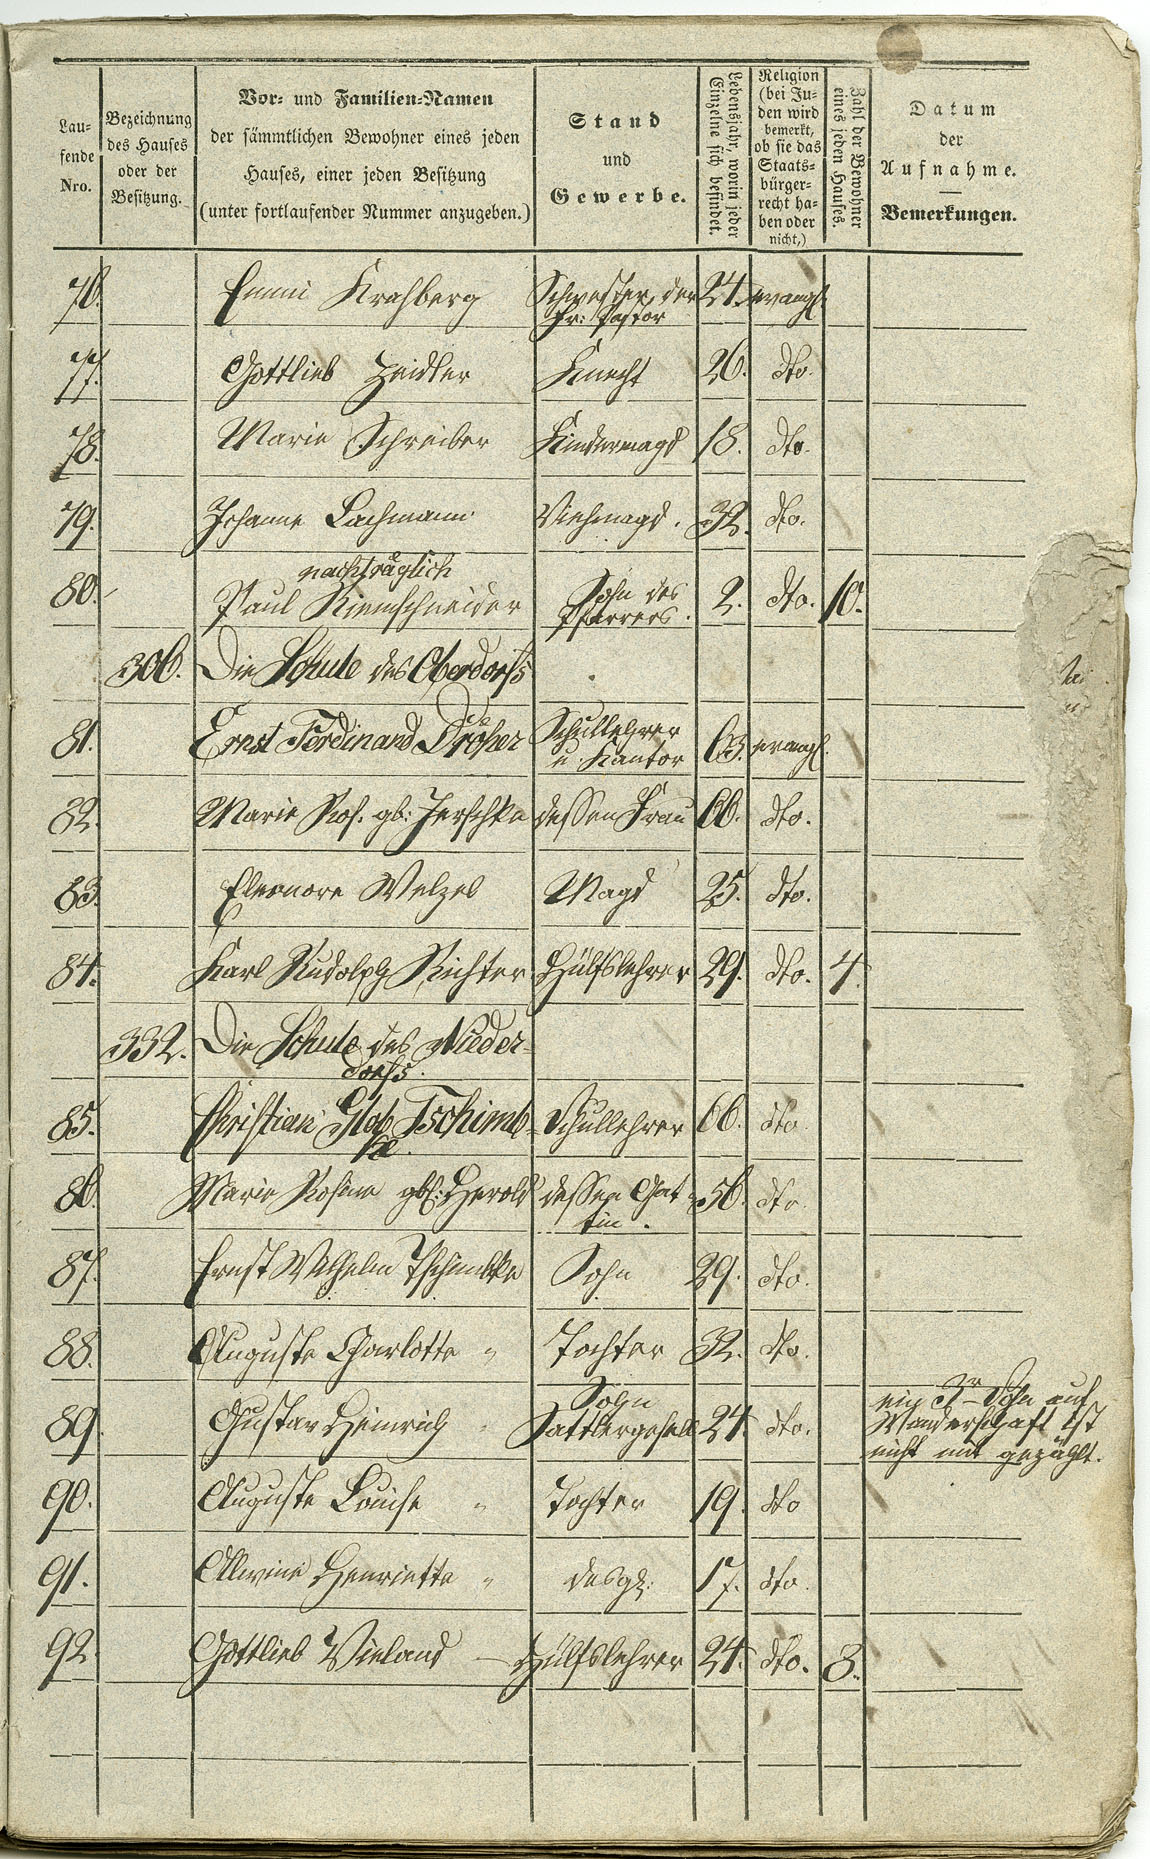 Lau-
fende
Nro.
Bezeichnung
des Hauses
oder der
Besitzung.
Vor- und Familien-Namen
der sämmtlichen Bewohner eines jeden
Hauses, einer jeden Besitzung
(unter fortlaufender Nummer anzugeben.)
Stand
und
Gewerbe.
Lebensjahr, worin jeder
Einzelne sich befindet.
Religion
(bei Ju-
den wird
bemerkt,
ob sie das
Staats-
bürger-
recht ha-
ben oder
nicht,)
Zahl der Bewohner
eines jeden Hauses.
Datum
der
Aufnahme.
Bemerkungen.
76. Emmi Krahberg Schwester der 24. evangl.
Fr: Pastor
77. Gottlieb Zeidler Knecht 26. dto.
78. Marie Schreiber Kindermagd 18. dto.
79. Johanne Lachmann Viehmagd. 32. dto.
nachträglich
80. Paul Riemschneider Sohn des 2. dto. 10.
Pfarrers.
306. Die Schule des Oberdorfs
81. Ernst Ferdinand Dröher Schullehrer 63. evangl.
u. Kantor
82. Marie Ros. gb: Jerschke dessen Frau 66. dto.
83. Eleonore Welzel Magd 25. dto.
84. Karl Rudolph Richter Hülfslehrer 29. dto. 4.
332. Die Schule des Nieder-
dorfs.
85. Christian Glob Tschimb- Schullehrer 66. dto.
ke.
86. Marie Rosine gb: Herold dessen Gat- 56. dto.
tin.
87. Ernst Wilhelm Tschimbke Sohn 29. dto.
88. Auguste Charlotte " Tochter 32. dto.
Sohn
89. Gustav Heinrich " Sattlergesell 24. dto.
ein 3r Sohn auf
Wanderschaft ist
nicht mit gezählt.
90. Auguste Louise " Tochter 19. dto
91. Allwine Henriette " desgl. 17. dto.
92. Gottlieb Wieland Hülfslehrer 24. dto. 8.